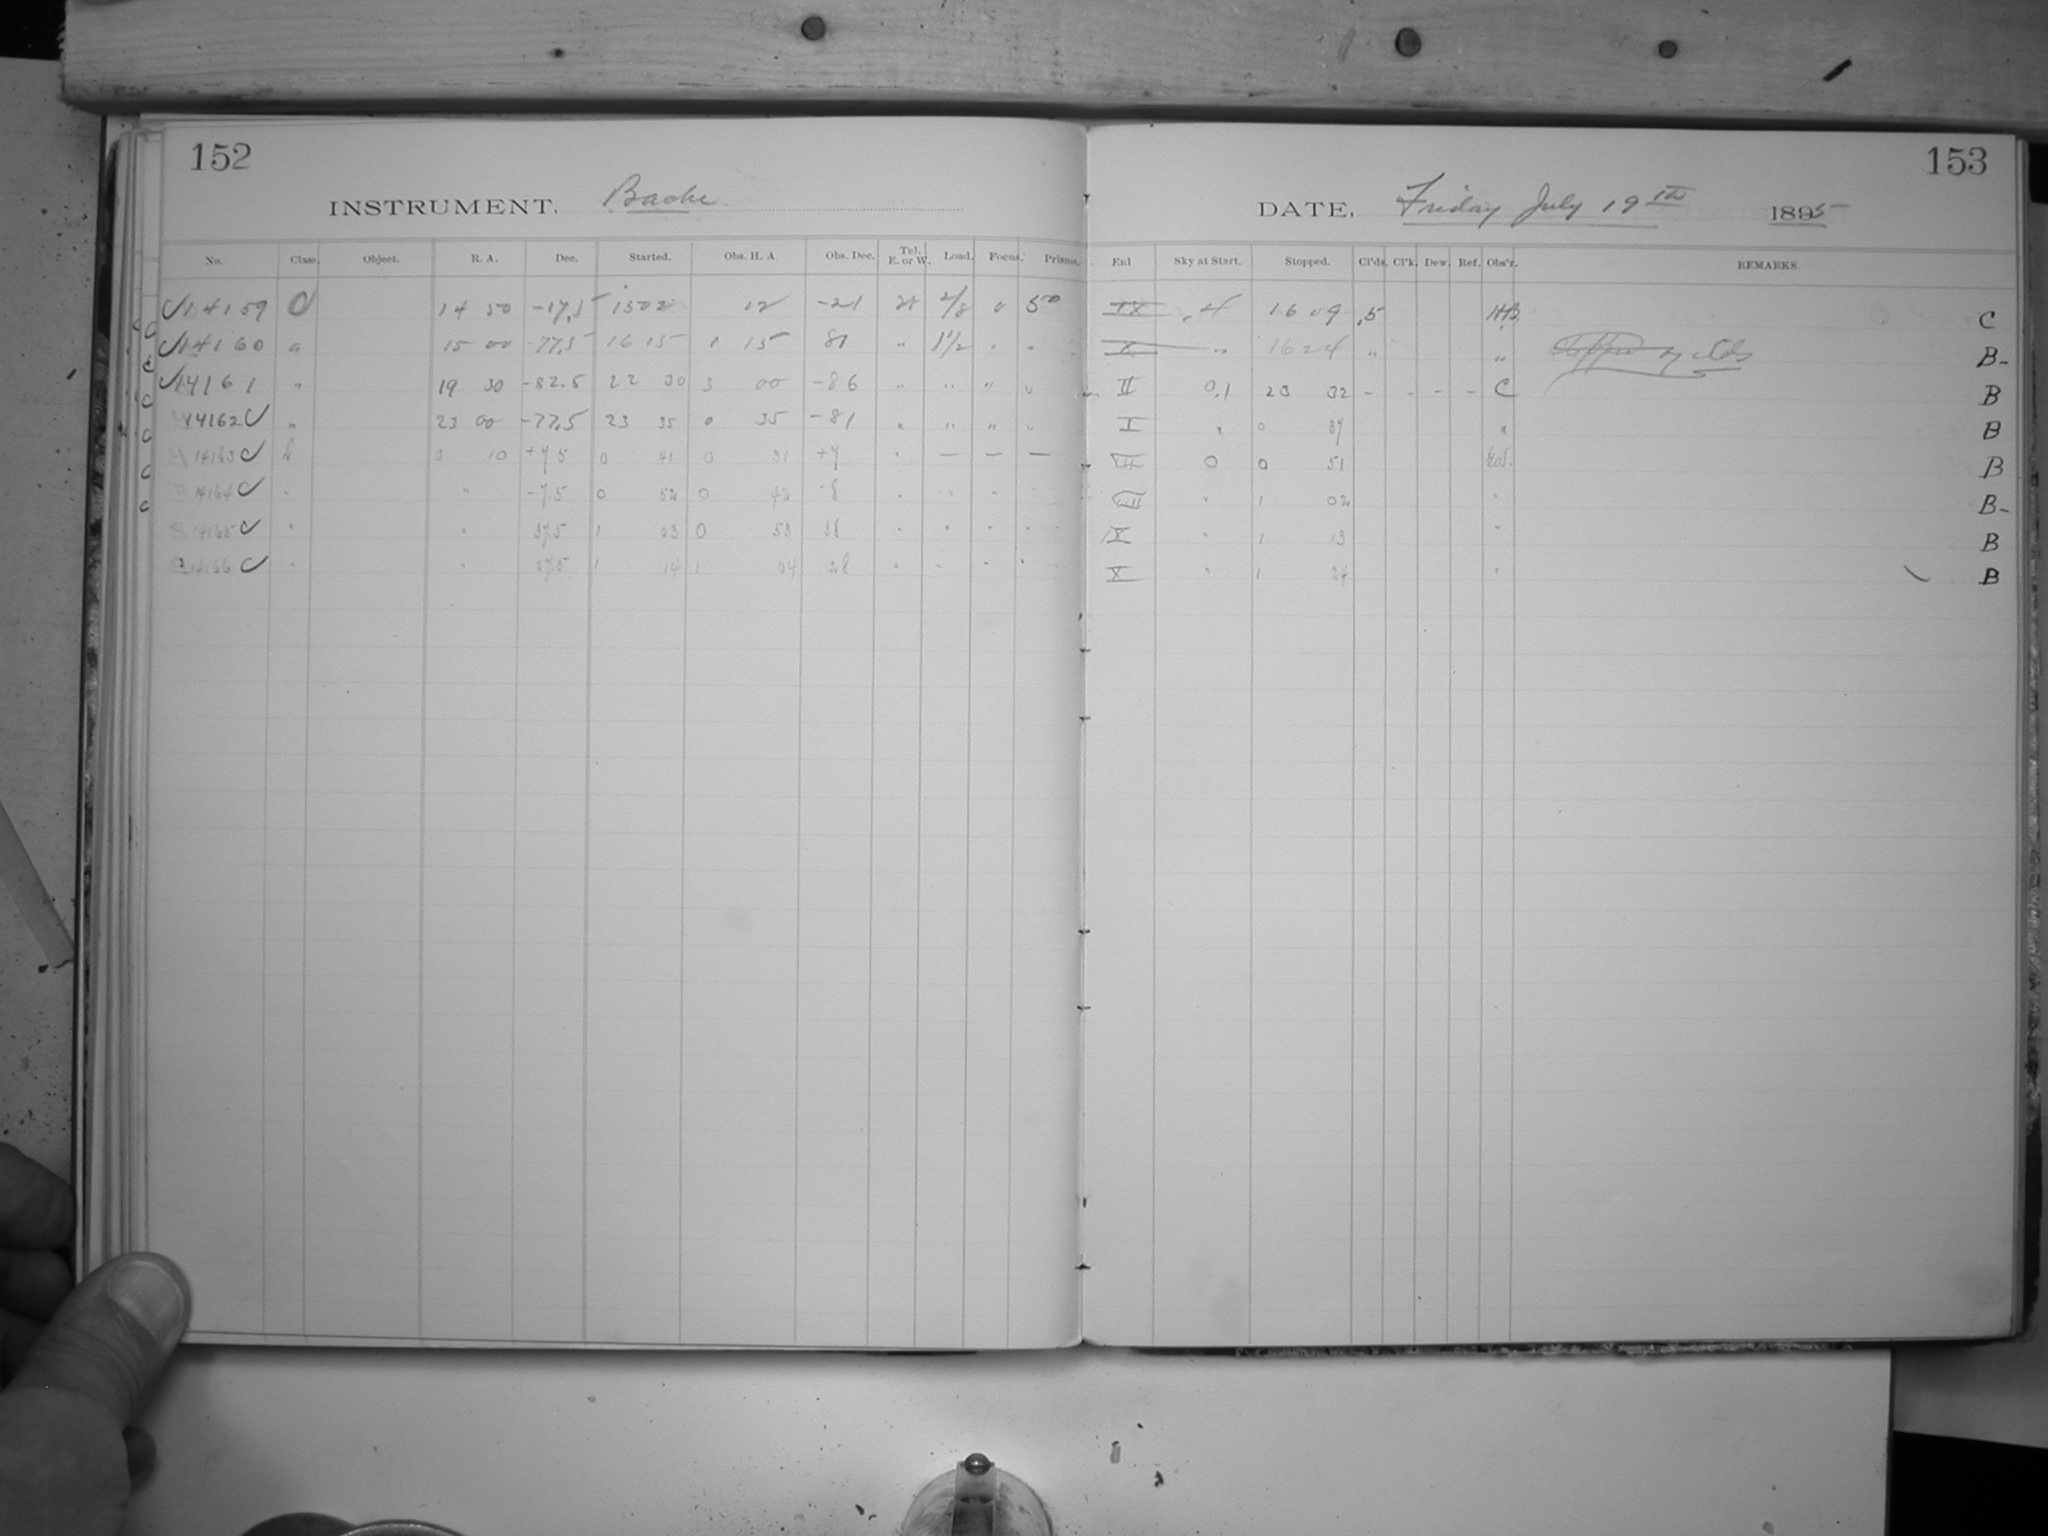 152
INSTRUMENT. Bache
No. Class. Object. R. A. Dec. Started. Obs. H. A. Obs. Dec. Tel. E. or W. Load. Focus. Prisms.
14159 C 14 50 -17.5 1502 12 -21 0 50
14160 a 15 00 -77.5 16 15 1 15 81 " 1½ " "
14161 " 19 30 -82.5 22 30 3 00 -86 " " " "
14162 " 23 00 -77.5 23 35 0 35 -81 " " " "
14163 b 0 10 +7.5 0 41 0 31 +7 " — — —
14164 " " -7.5 0 52 0 42 -8 " " " "
14165 " " 37.5 1 03 0 53 38 " " " "
14166 " " 27.5 1 14 1 04 28 " " " "
153
DATE, Friday July 19th 1895
Enl Sky at Start. Stopped. Cl'ds. Cl'k. Dew. Ref. Obs'r. REMARKS.
IX .4 16 09 .5 HB. C
X " 1624 " " by clds B-
II 0.1 23 32 - - - - C B
I " 0 37 " B
0 0 51 B
" 1 02 " B-
IX " 1 13 " B
X " 1 24 " B